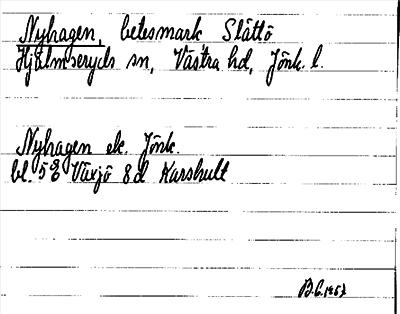 Nyhagen, betesmark Slättö
Hjälmseryds sn, Västra hd, Jönk. l.
Nyhagen ek. Jönk.
bl. 5E Växjö 8d Karshult
B.G. 1963